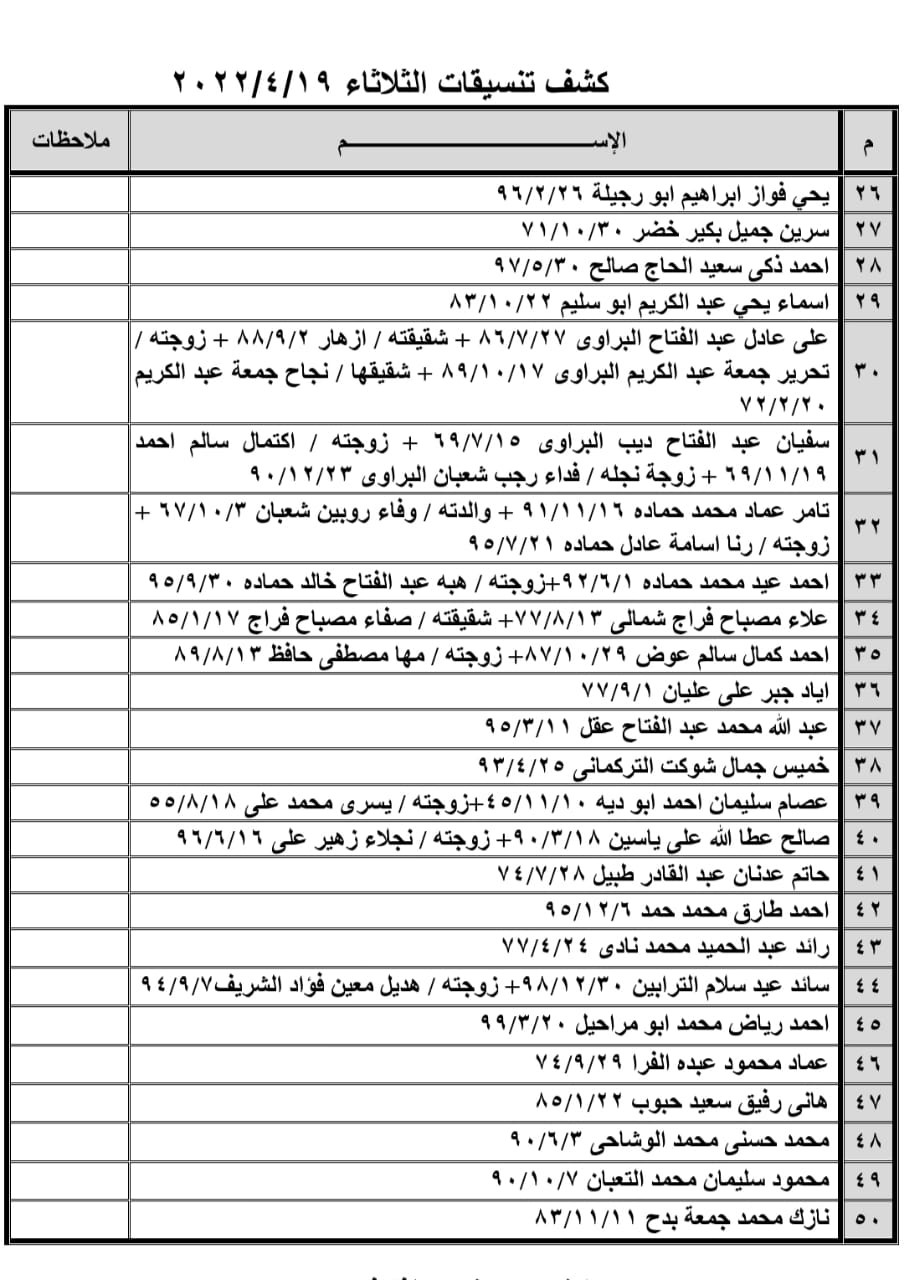 كشف تنسيقات الثلاثاء ٢٠٢٢/٤/١٩
م الإســـــم ملاحظات
٢٦ يحي فواز ابراهيم ابو رجيلة ٩٦/٢/٢٦
٢٧ سرين جميل بكير خضر ٧١/١٠/٣٠
٢٨ احمد ذكى سعيد الحاج صالح ٩٧/٥/٣٠
٢٩ اسماء يحي عبد الكريم ابو سليم ٨٣/١٠/٢٢
٣٠ على عادل عبد الفتاح البراوى ٨٦/٧/٢٧ + شقيقته / ازهار ٨٨/٩/٢ + زوجته /
تحرير جمعة عبد الكريم البراوى ٨٩/١٠/١٧ + شقيقها / نجاح جمعة عبد الكريم
٧٢/٢/٢٠
٣١ سفيان عبد الفتاح ديب البراوى ٦٩/٧/١٥ + زوجته / اكتمال سالم احمد
٦٩/١١/١٩ + زوجة نجله / فداء رجب شعبان البراوى ٩٠/١٢/٢٣
٣٢ تامر عماد محمد حماده ٩١/١١/١٦ + والدته / وفاء روبين شعبان ٦٧/١٠/٣ +
زوجته / رنا اسامة عادل حماده ٩٥/٧/٢١
٣٣ احمد عيد محمد حماده ٩٢/٦/١+زوجته / هبه عبد الفتاح خالد حماده ٩٥/٩/٣٠
٣٤ علاء مصباح فراج شمالى ٧٧/٨/١٣+ شقيقته / صفاء مصباح فراج ٨٥/١/١٧
٣٥ احمد كمال سالم عوض ٨٧/١٠/٢٩+ زوجته / مها مصطفى حافظ ٨٩/٨/١٣
٣٦ اياد جبر على عليان ٧٧/٩/١
٣٧ عبد الله محمد عبد الفتاح عقل ٩٥/٣/١١
٣٨ خميس جمال شوكت التركمانى ٩٣/٤/٢٥
٣٩ عصام سليمان احمد ابو ديه ٤٥/١١/١٠+زوجته / يسرى محمد على ٥٥/٨/١٨
٤٠ صالح عطا الله على ياسين ٩٠/٣/١٨+ زوجته / نجلاء زهير على ٩٦/٦/١٦
٤١ حاتم عدنان عبد القادر طبيل ٧٤/٧/٢٨
٤٢ احمد طارق محمد حمد ٩٥/١٢/٦
٤٣ رائد عبد الحميد محمد نادى ٧٧/٤/٢٤
٤٤ سائد عيد سلام الترابين ٩٨/١٢/٣٠+ زوجته / هديل معين فؤاد الشريف٩٤/٩/٧
٤٥ احمد رياض محمد ابو مراحيل ٩٩/٣/٢٠
٤٦ عماد محمود عبده الفرا ٧٤/٩/٢٩
٤٧ هانى رفيق سعيد حبوب ٨٥/١/٢٢
٤٨ محمد حسنى محمد الوشاحى ٩٠/٦/٣
٤٩ محمود سليمان محمد التعبان ٩٠/١٠/٧
٥٠ نازك محمد جمعة بدح ٨٣/١١/١١